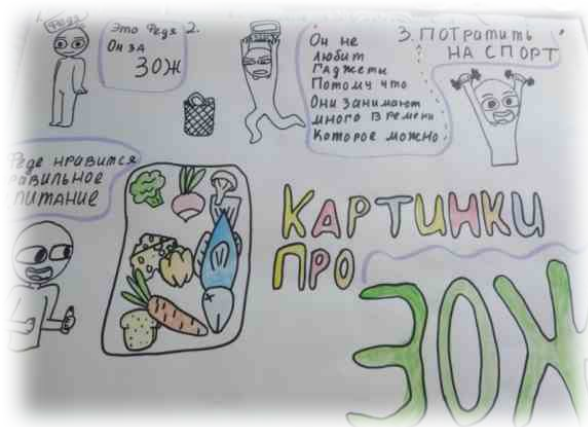 1.
Федя
Это Федя
Он за
ЗОЖ
2.
Он не
любит
Гаджеты
Потому что
Они занимают
много времени
которое можно
3. ПОТРАТИТЬ
НА СПОРТ
Феде нравится
равильное
ПИТАНИЕ
КАРТИНКИ
ПРО
ЗОЖ